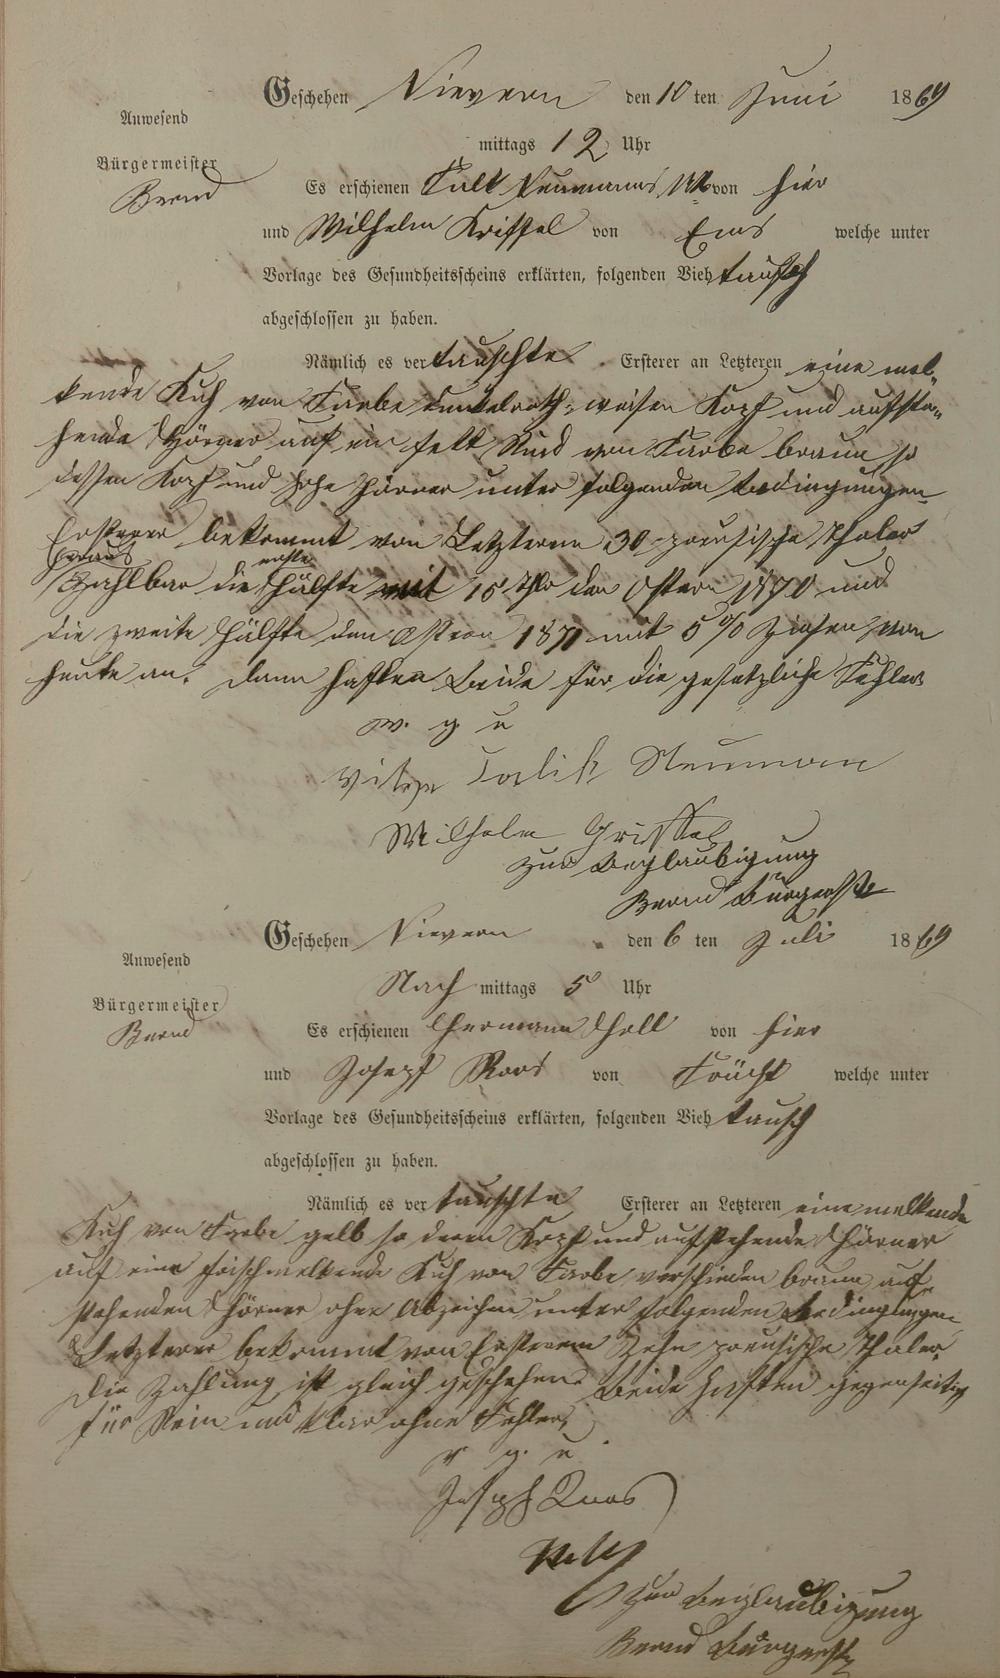 Geschehen Nievern den 10 ten Juni 1869
Anwesend
mittags 12 Uhr
Bürgermeister
Bernd
Es erschienen Neumanns von hier
und Wilhelm Krissel von Ems welche unter
Vorlage des Gesundheitsscheins erklärten, folgenden Viehtausch
abgeschlossen zu haben.
Nämlich es vertauschte Ersterer an Letzteren eine mel-
kende Kuh von Farbe dunkelroth weisen Kopf und aufste-
hende Hörner auf ein fett Rind von Farbe braun so
dessen Kopf und hohe Hörner unter folgenden Bedingungen
Ersterer bekommt von Letzterem 30 preusische Thaler
heraus erste
Zahlbar die Hälfte mit 15 Thlr den Ostern 1870 und
die zweite Hälfte den Ostern 1871 mit 5 % Zinsen von
heute an. dann haften Beide für die gesetzliche Fehler
v. g. u
Neuman
Wilhelm Grissel
Zur Beglaubigung
Bernd Bürgermstr
Geschehen Nievern den 6 ten Juli 1869
Anwesend
Nach mittags 5 Uhr
Bürgermeister
Bernd
Es erschienen Hermann Holl von hier
und Joseph Roos von Frücht welche unter
Vorlage des Gesundheitsscheins erklärten, folgenden Viehtausch
abgeschlossen zu haben.
Nämlich es vertauschte Ersterer an Letzteren eine melkende
Kuh von Farbe gelb so deren Kopf und aufstehende Hörner
auf eine frischmelkende Kuh von Farbe verschieden braun auf-
stehenden Hörner ohne Abzeichen unter folgenden Bedingungen
Letzterer bekommt von Ersterem Zehn preusische Thaler.
Die Zahlung ist gleich geschehen. Beide haften gegenseitig
für Rein und klar ohne Fehler.
v. g. u.
Joseph Roos
Holl
Zur Beglaubigung
Bernd Bürgermstr